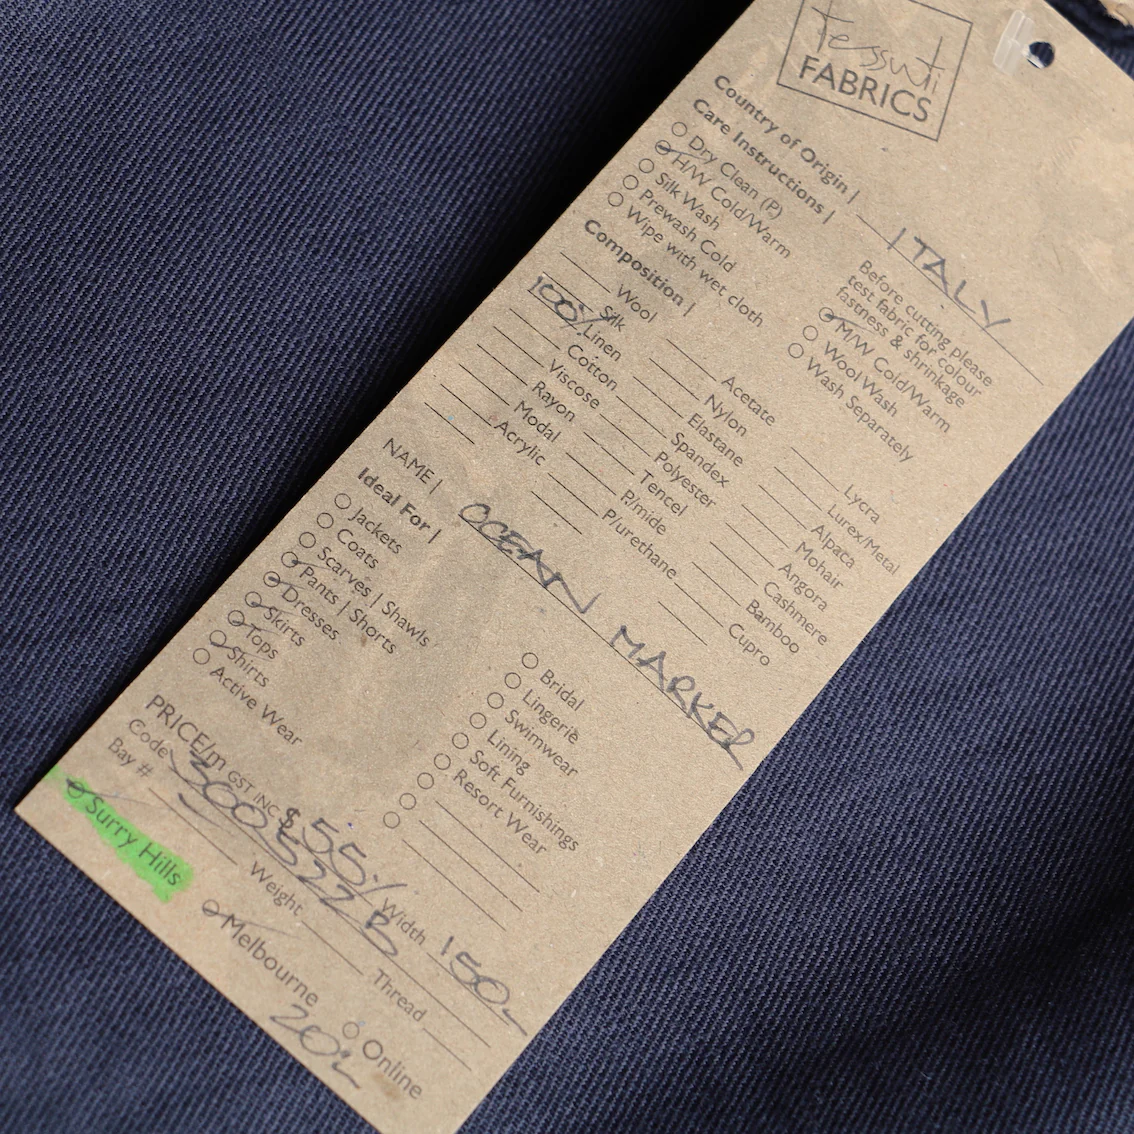 Tessuti
FABRICS
Country of Origin | ITALY
Care Instructions |
Dry Clean (P)
H/W Cold/Warm
Silk Wash
Prewash Cold
Wipe with wet cloth
Before cutting please
test fabric for colour
fastness & shrinkage
M/W Cold/Warm
Wool Wash
Wash Separately
Composition |
Wool
Silk
100% Linen
Cotton
Viscose
Rayon
Modal
Acrylic
Acetate
Nylon
Elastane
Spandex
Polyester
Tencel
P/mide
P/urethane
Lycra
Lurex/Metal
Alpaca
Mohair
Angora
Cashmere
Bamboo
Cupro
NAME | OCEAN MARKER
Ideal For |
Jackets
Coats
Scarves | Shawls
Pants | Shorts
Dresses
Skirts
Tops
Shirts
Active Wear
Bridal
Lingerie
Swimwear
Lining
Soft Furnishings
Resort Wear
PRICE/m GST INC $55 Width 150
Code 300522 B
Bay # Weight Thread
Surry Hills Melbourne Online